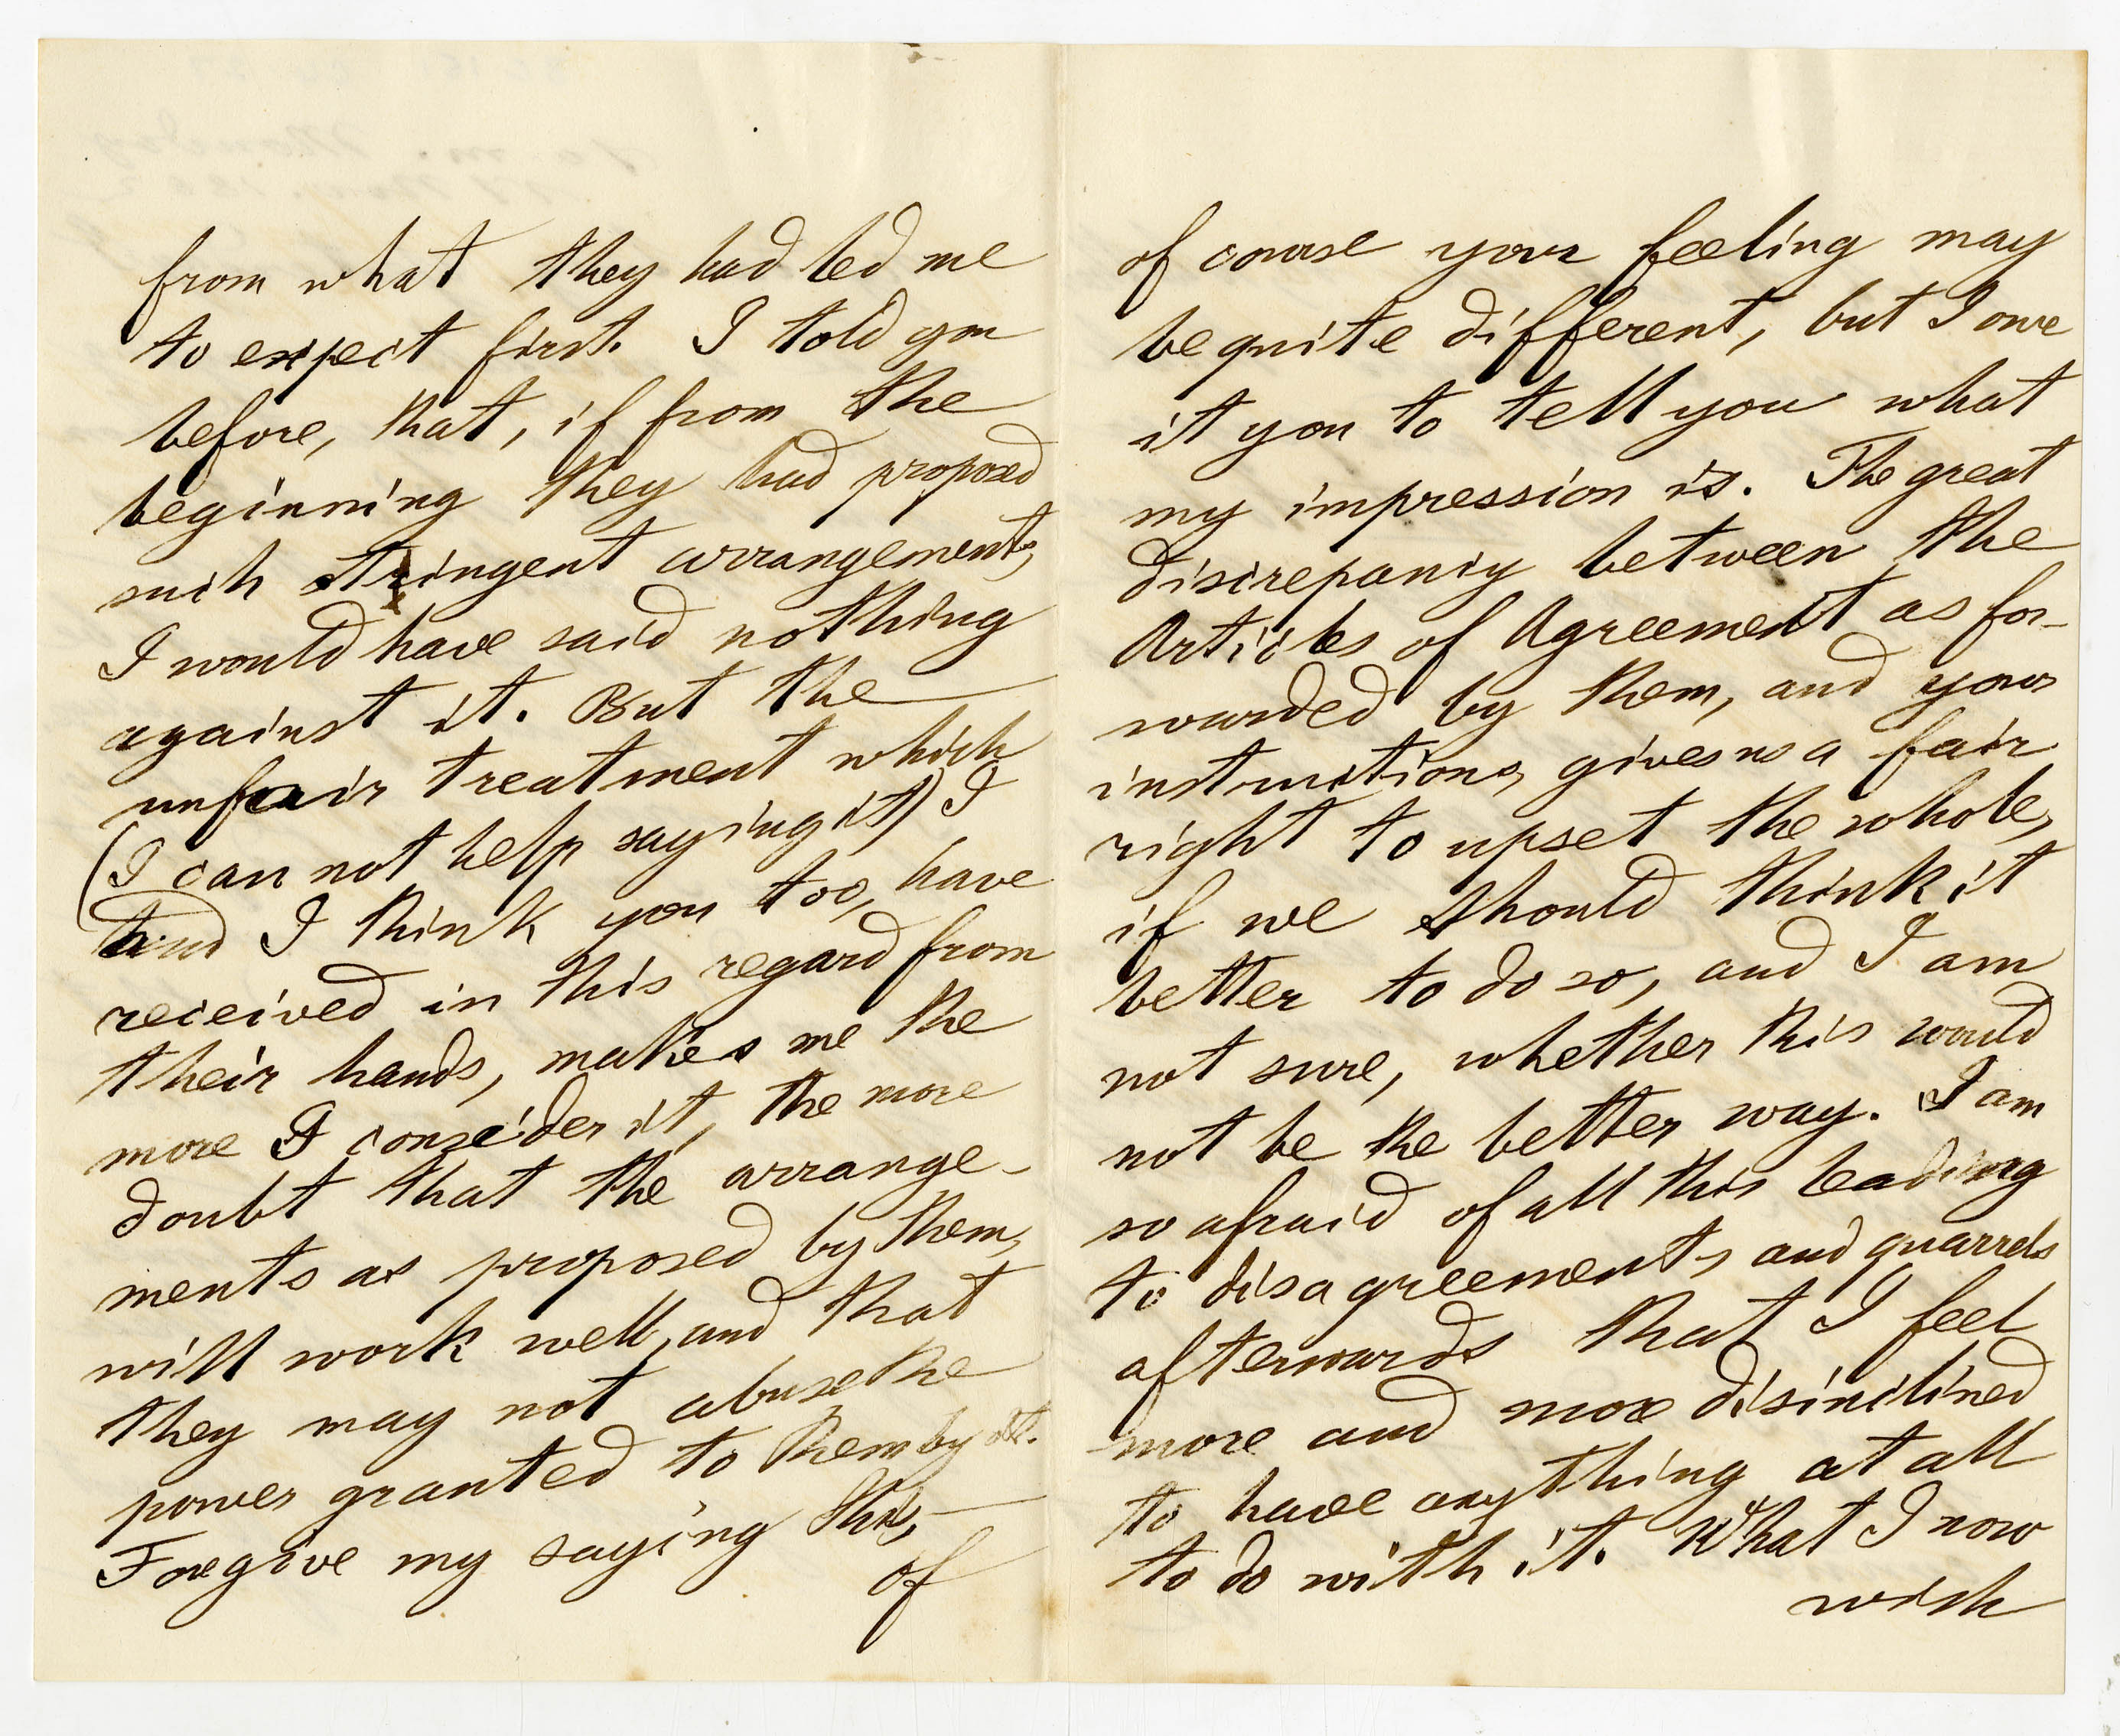 from what they had led me
to expect first. I told you
before, that, if from the
beginning they had proposed
such stringent arrangements,
I would have said nothing
against it. But the
unfair treatment which
(I can not help saying it) I
and I think you too, have
received in this regard from
their hands, makes me the
more I consider it, the more
doubt that the arrange-
ments as proposed by them,
will work well, and that
they may not abuse the
power granted to them by it.
Foregive my saying this,
of
of course your feeling may
be quite different, but I owe
it you to tell you what
my impression is. The great
discrepancy between the
Articles of Agreement as for-
warded by them, and your
instructions, gives us a fair
right to upset the whole,
if we should think it
better to do so, and I am
not sure, whether this would
not be the better way. I am
so afraid of all this leading
to disagreements and quarrels
afterwards that I feel
more and more disinclined
to have anything at all
to do with it. What I now
wish